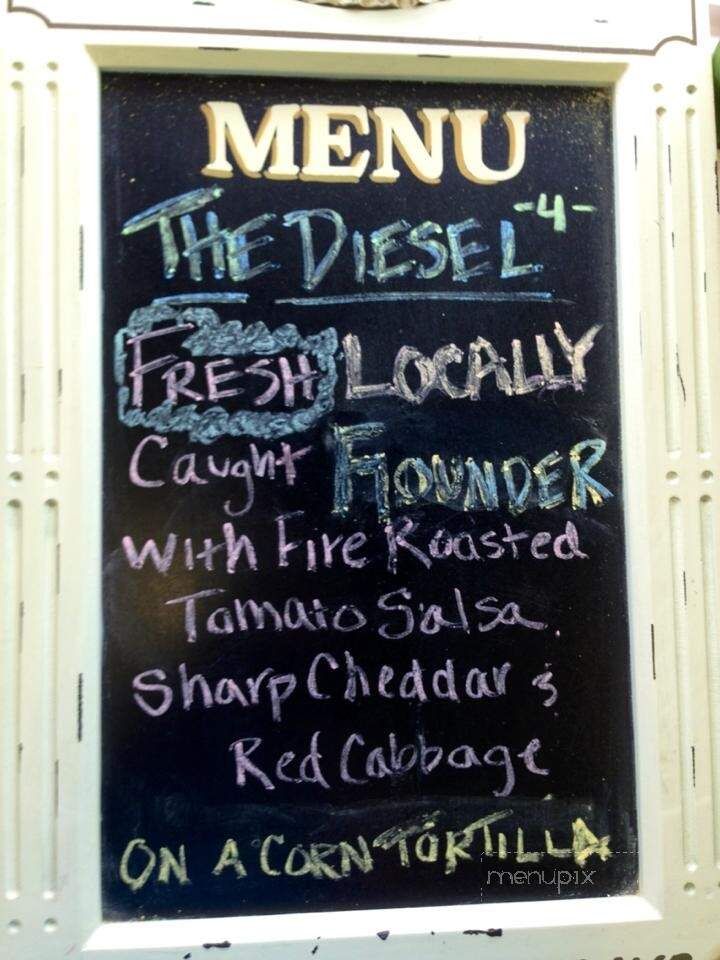 MENU
THE DIESEL -4-
FRESH LOCALLY
Caught FLOUNDER
With Fire Roasted
Tomato Salsa,
Sharp Cheddar &
Red Cabbage
ON A CORN TORTILLA
menupix